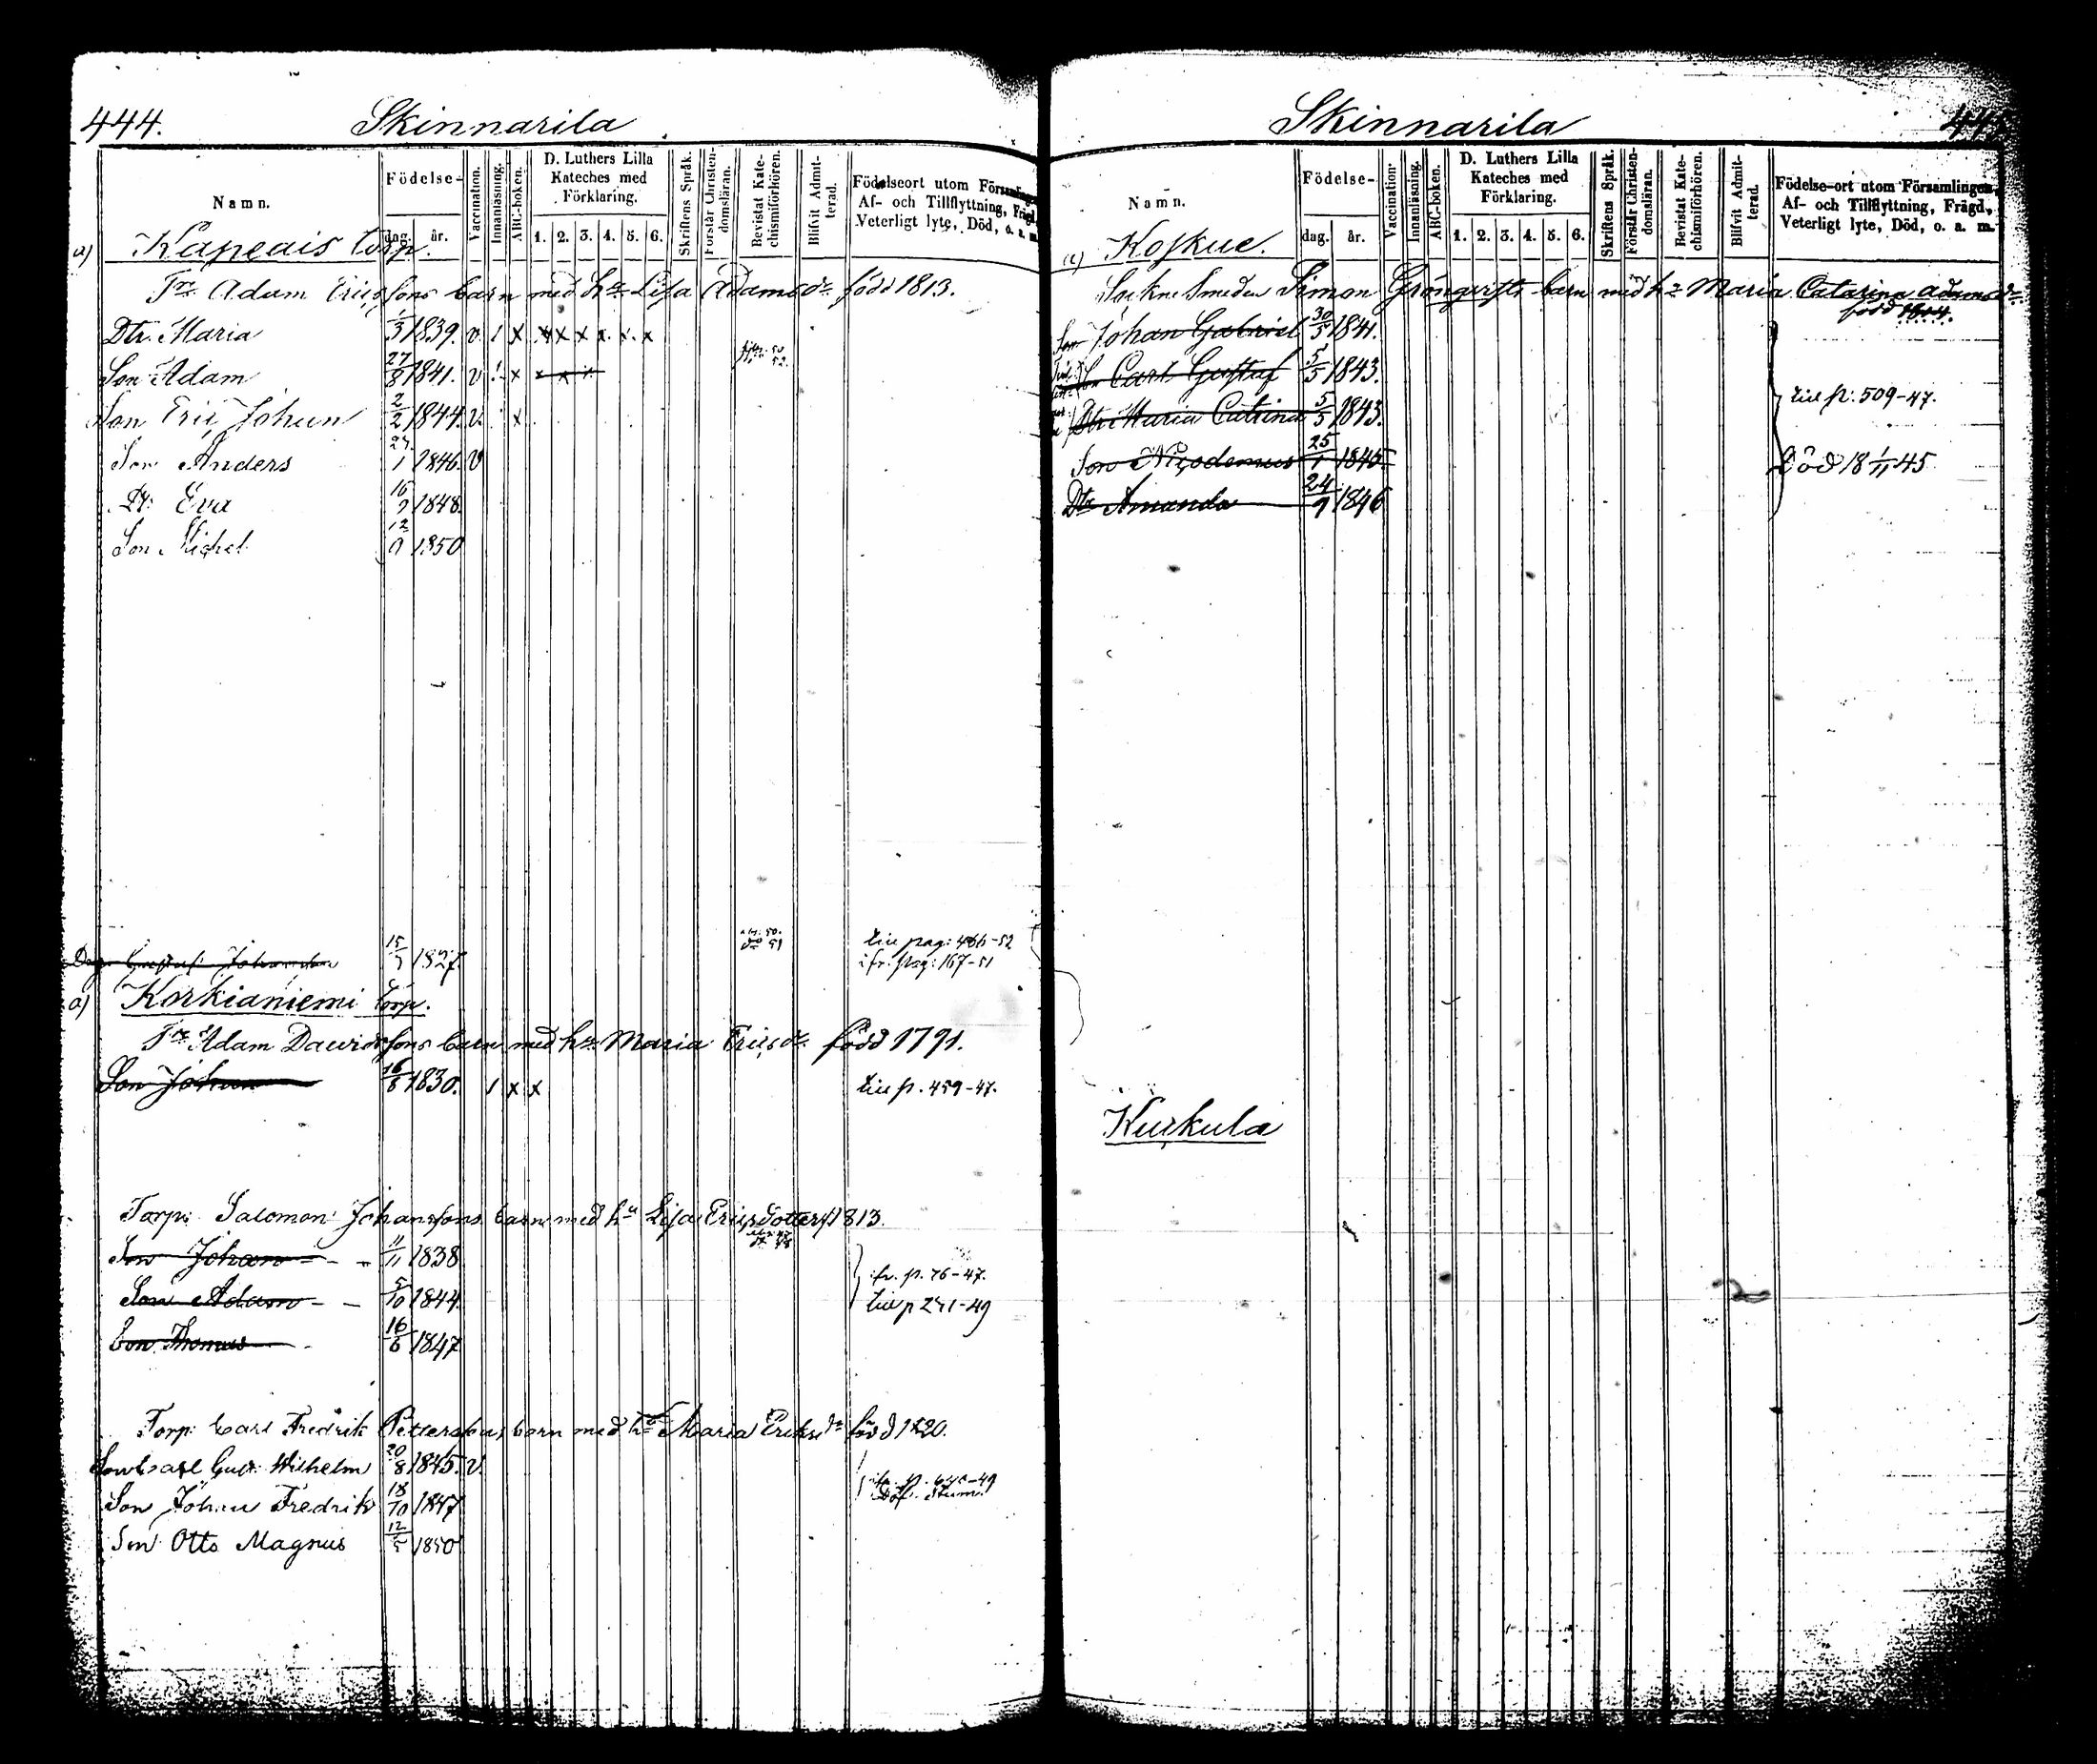 444.
Skinnarila
Namn.
Födelse-
dag. år.
Vaccination.
Innanläsning.
ABC-boken.
D. Luthers Lilla Kateches med Förklaring.
1. 2. 3. 4. 5. 6.
Skriftens Språk.
Förstår Christendomsläran.
Bevistat Katechismiförhören.
Blifvit Admitterad.
Födelseort utom Församlingen, Af- och Tillflyttning, Frägd, Veterligt lyte, Död, o. a. m.
a) Kapeais torp.
Adam Ericssons barn med h. Lisa Adamsdr född 1813.
Dtr. Maria 1839. v. 1 x x x x x. x. x
Son Adam 27/8 1841. v x x x x
Son Eric Johan 2/2 1844. v. x
Son Anders 1846. v
Dtr Eva 1848.
Son Michel 1850
Gustaf Johansson 1827. 51
fr. pag: 167-51
a) Korkianiemi torp.
Adam Davidssons barn med h. Maria Ericsdr född 1791.
Son Johan 16/8 1830. 1 x x p. 459-47.
Torp. Salomon Johanssons barn med h. Lisa Ericsdotter f 1813.
Son Johan - - 11/11 1838
fr. p. 76-47.
Son Adam - - 5/10 1844.
p 241-49
Son Thomas 16/6 1847
Torp. Carl Fredrik Pettersons barn med h. Maria Eriksdr född 1820.
Son Carl Gust. Wilhelm 20/8 1845. v.
Son Johan Fredrik 18/10 1847
Döfstum
Son Otto Magnus 12/5 1850
Skinnarila
Namn.
Födelse-
dag. år.
Vaccination.
Innanläsning.
ABC-boken.
D. Luthers Lilla Kateches med Förklaring.
1. 2. 3. 4. 5. 6.
Skriftens Språk.
Förstår Christendomsläran.
Bevistat Katechismiförhören.
Blifvit Admitterad.
Födelse-ort utom Församlingen, Af- och Tillflyttning, Frägd, Veterligt lyte, Död, o. a. m.
a) Koskue.
Sockne Smeden Simon Gröngvists barn med h. Maria Catarina Adamsdr
född
Son Johan Gabriel 30/3 1841.
Son Carl Gustaf 5/5 1843.
p. 509-47.
Dtr Maria Catrina 5/5 1843.
Son Nicodemus 25/1 1845
Död 18 1/11 45
Dtr Amanda 24/9 1846
Kurkula